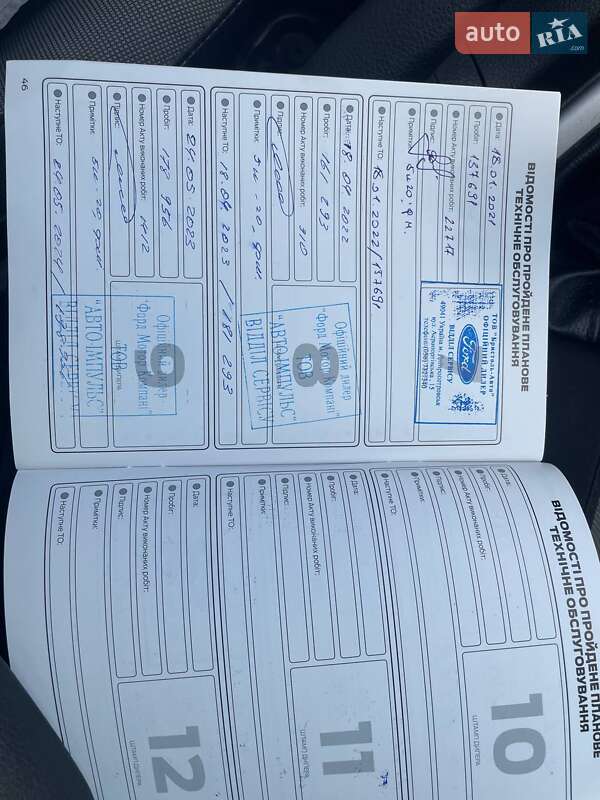 auto RIA.com
46
ВІДОМОСТІ ПРО ПРОЙДЕНЕ ПЛАНОВЕ
ТЕХНІЧНЕ ОБСЛУГОВУВАННЯ
Дата: 18.01.2021
Пробіг: 137691
Номер Акту виконаних робіт: 22717
Підпис:
Примітки: 5w20. 4 л.
Наступне ТО: 18.01.2022/157691
ТОВ "Кристал-Авто"
ОФІЦІЙНИЙ ДИЛЕР
Ford
ВІДДІЛ СЕРВІСУ
Дата: 18 04 2022
Пробіг: 161 293
Номер Акту виконаних робіт: 910
Підпис:
Примітки: 5w-20,
Наступне ТО: 18.04.2023 / 181 293
8
Офіційний дилер
"Форд Мотор Компані"
ТОВ
"АВТОІМПУЛЬС"
ВІДДІЛ СЕРВІСУ
Дата: 04.05.2023
Пробіг: 178 956
Номер Акту виконаних робіт: 1412
Підпис:
Примітки: 5w-20,
Наступне ТО: 04.05.2024 /
9
ШТАМП ДИЛЕРА
Офіційний дилер
"Форд Мотор Компані"
ТОВ
"АВТОІМПУЛЬС"
ВІДДІЛ СЕРВІСУ
ВІДОМОСТІ ПРО ПРОЙДЕНЕ ПЛАНОВЕ
ТЕХНІЧНЕ ОБСЛУГОВУВАННЯ
Дата:
Пробіг:
Номер Акту виконаних робіт:
Підпис:
Примітки:
Наступне ТО:
10
ШТАМП ДИЛЕРА
Дата:
Пробіг:
Номер Акту виконаних робіт:
Підпис:
Примітки:
Наступне ТО:
11
ШТАМП ДИЛЕРА
Дата:
Пробіг:
Номер Акту виконаних робіт:
Підпис:
Примітки:
Наступне ТО:
12
ШТАМП ДИЛЕРА